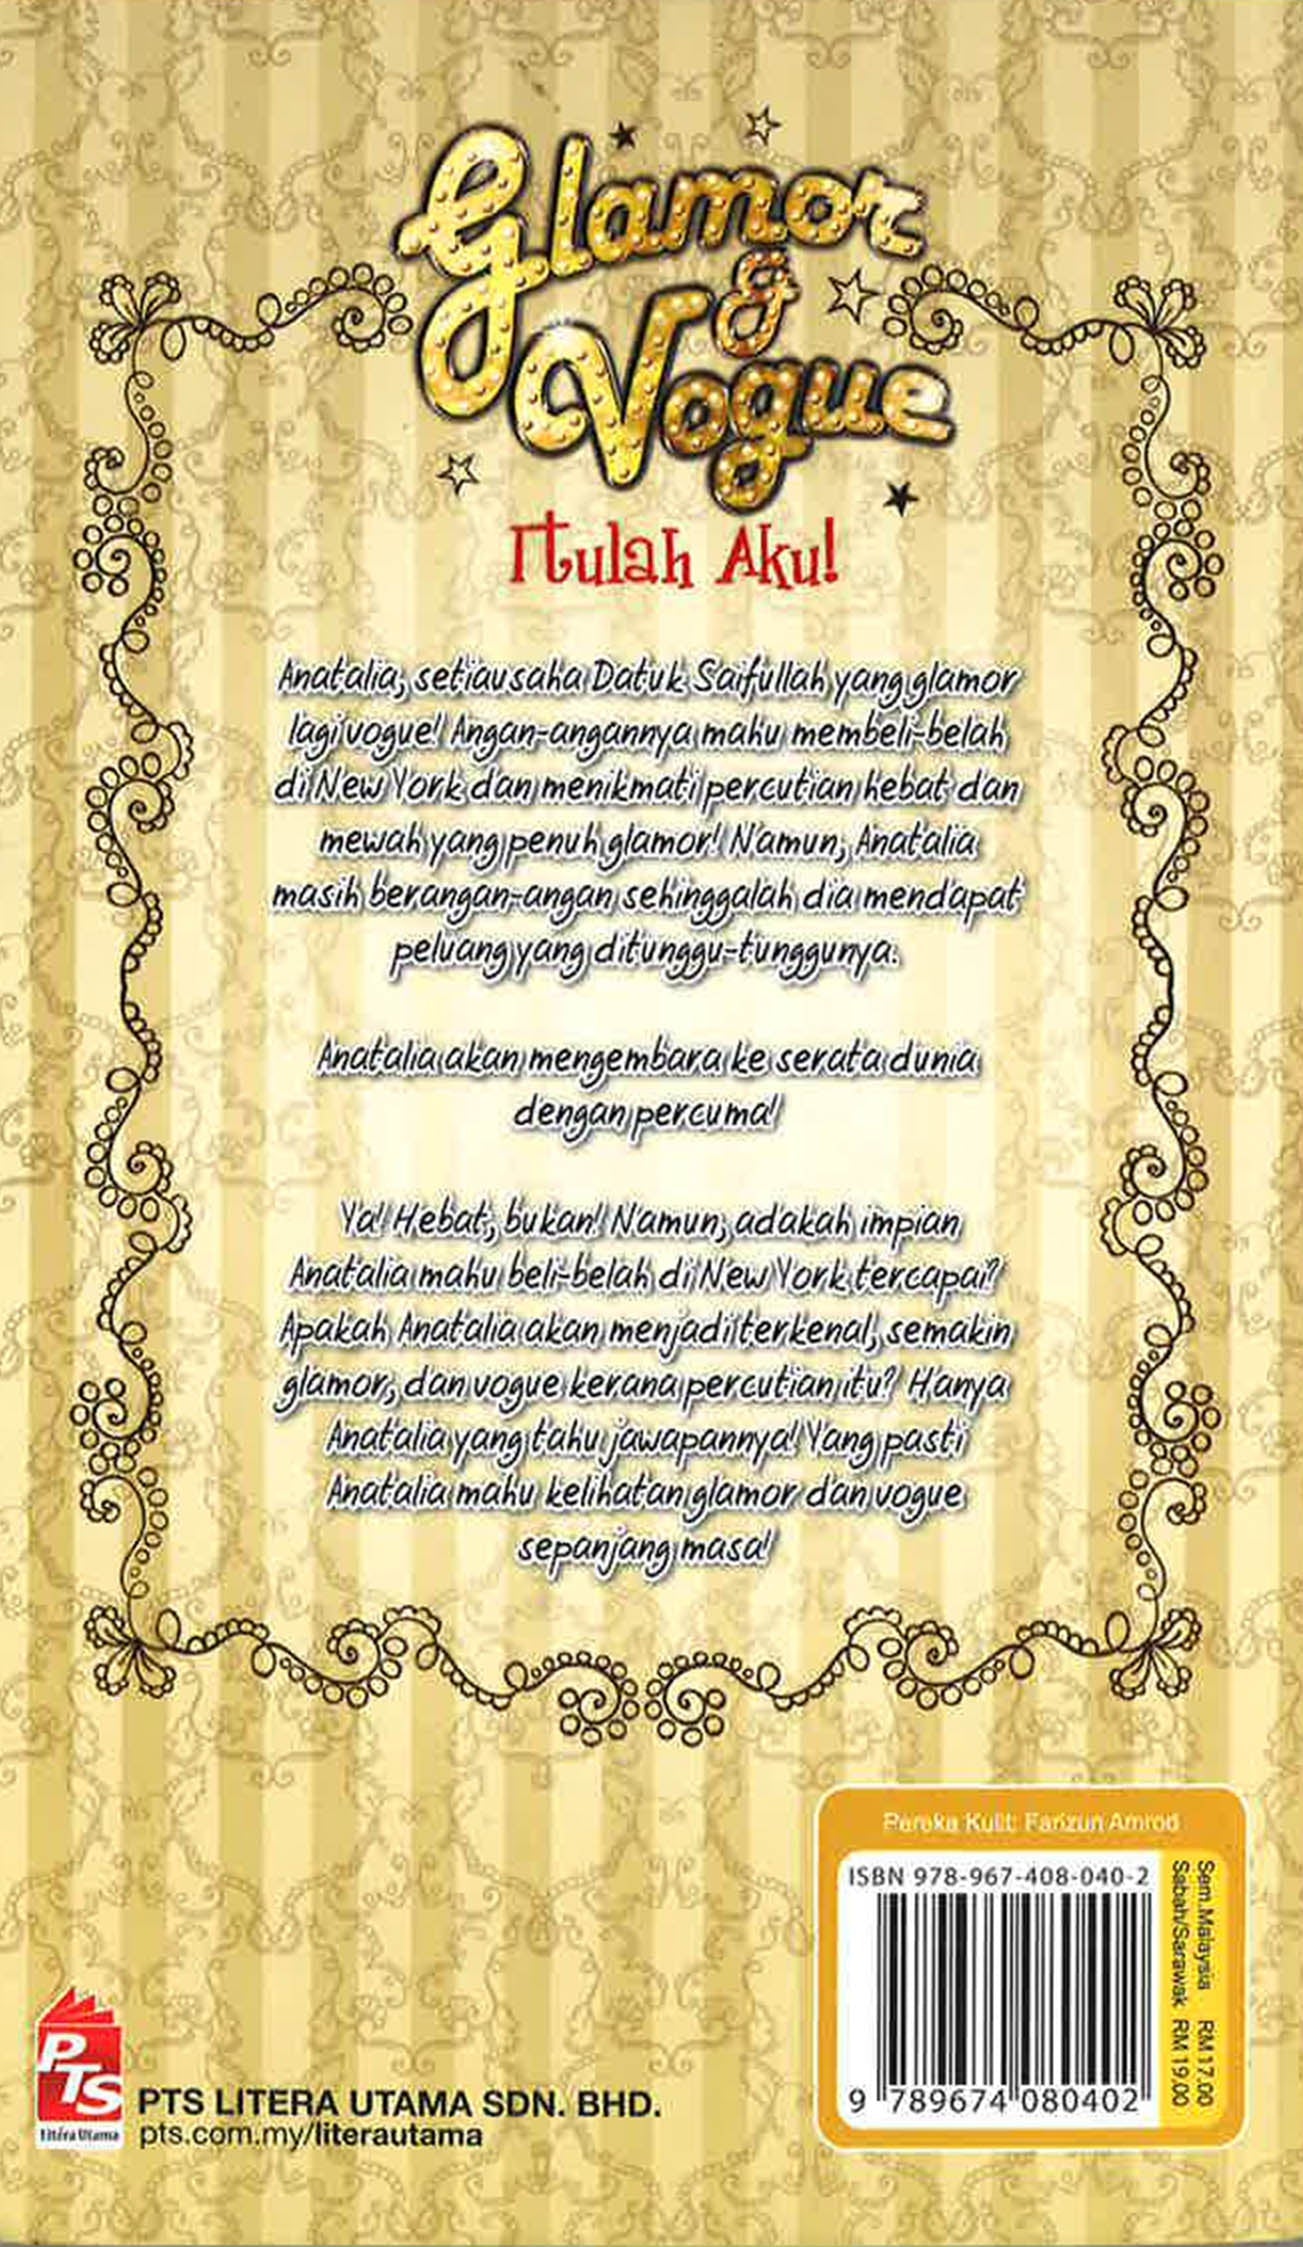 Glamor
&
Vogue
Itulah Aku!
Anatalia, setiausaha Datuk Saifullah yang glamor
lagi vogue! Angan-angannya mahu membeli-belah
di New York dan menikmati percutian hebat dan
mewah yang penuh glamor! Namun, Anatalia
masih berangan-angan sehinggalah dia mendapat
peluang yang ditunggu-tunggunya.
Anatalia akan mengembara ke serata dunia
dengan percuma!
Ya! Hebat, bukan! Namun, adakah impian
Anatalia mahu beli-belah di New York tercapai?
Apakah Anatalia akan menjadi terkenal, semakin
glamor, dan vogue kerana percutian itu? Hanya
Anatalia yang tahu jawapannya! Yang pasti
Anatalia mahu kelihatan glamor dan vogue
sepanjang masa!
Pereka Kulit: Farizun Amrod
ISBN 978-967-408-040-2
9 789674 080402
Sem.Malaysia RM 17.00
Sabah/Sarawak RM 19.00
PTS
Litera Utama
PTS LITERA UTAMA SDN. BHD.
pts.com.my/literautama